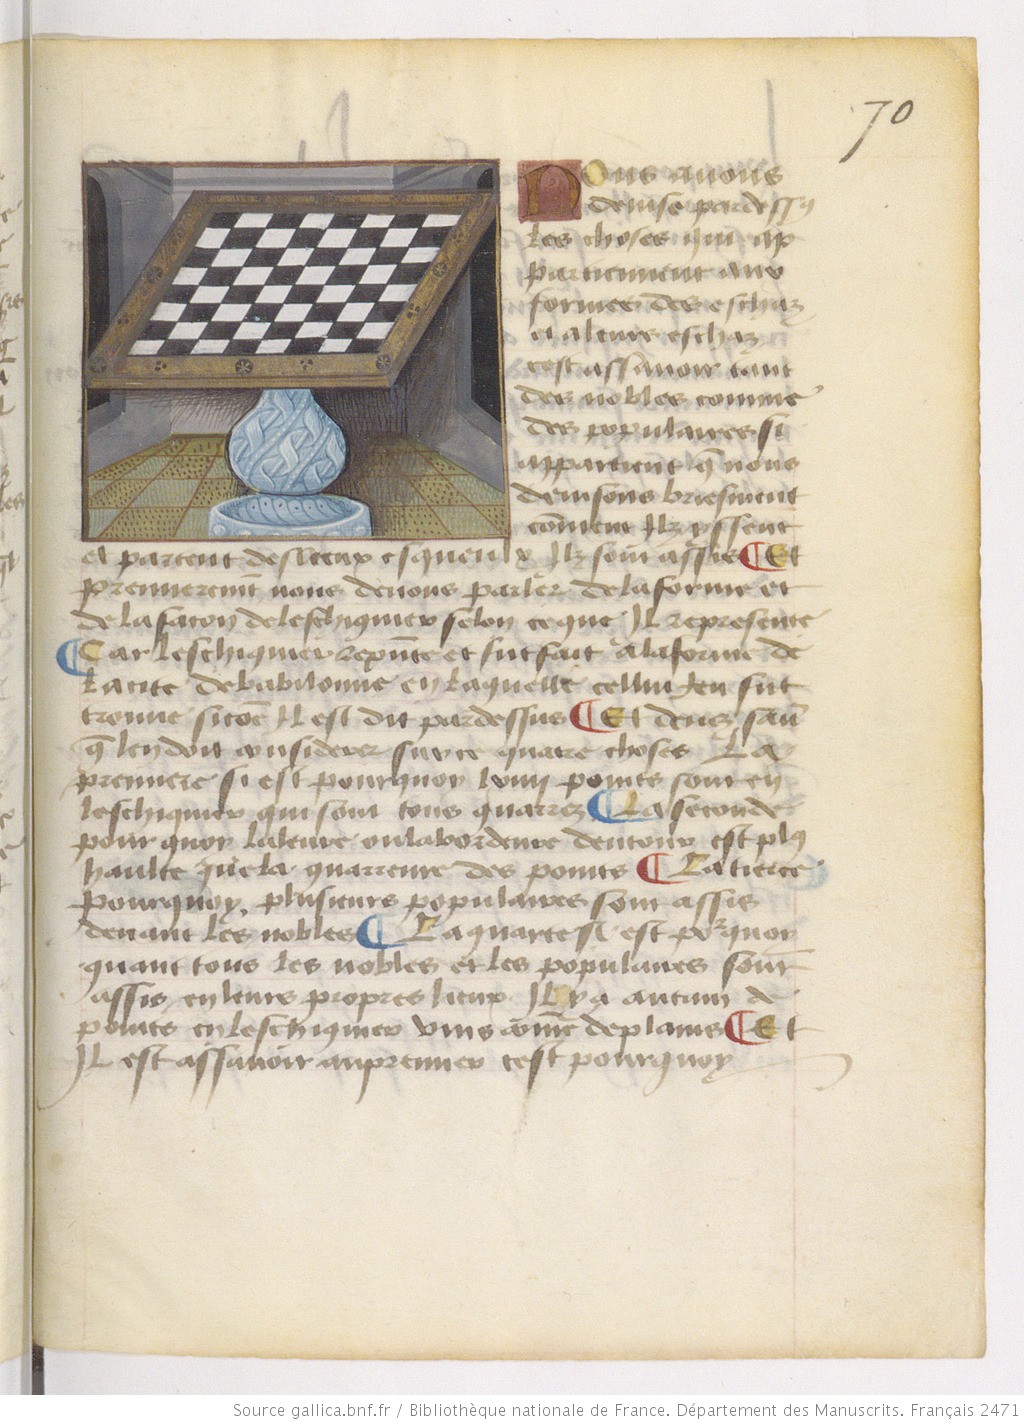 70
Nous auons
deuise pardessus
les choses qui ap
partiennent aux
formes des eschaz
et a leurs eschaz
cest assauoir tant
des nobles comme
des populaires si
appartient q̄ nous
deuisons briefment
cōment Ilz yssent
et partent des lieux esqueulx Ilz sont assis ¶ Et
premierem̄t nous deuons parler de la forme et
de la facon de leschiquier selon ce que Il represente
¶ Car leschiquier rep̄nte et fut fait a la forme de
la cite de babilonne en laquelle cellui Jeu fut
trouue si cōe Il est dit pardessus ¶ Et deuez sau
q̄ len doit considerer sur ce quatre choses La
premiere si est pourquoy lxiiii points sont en
leschiquier qui sont tous quarrez ¶ La seconde
pourquoy lateure ou la bordeure dentour est plus
haulte que la quarreure des points ¶ La tierce
pourquoy plusieurs populaires sont assis
deuant les nobles ¶ La quarte si est pourquoy
quant tous les nobles et les populaires sont
assis en leurs propres lieux Il y a autant de
points en leschiquier vuis cōme de plains ¶ Et
Il est assauoir au premier cest pourquoy
Source gallica.bnf.fr / Bibliothèque nationale de France. Département des Manuscrits. Français 2471